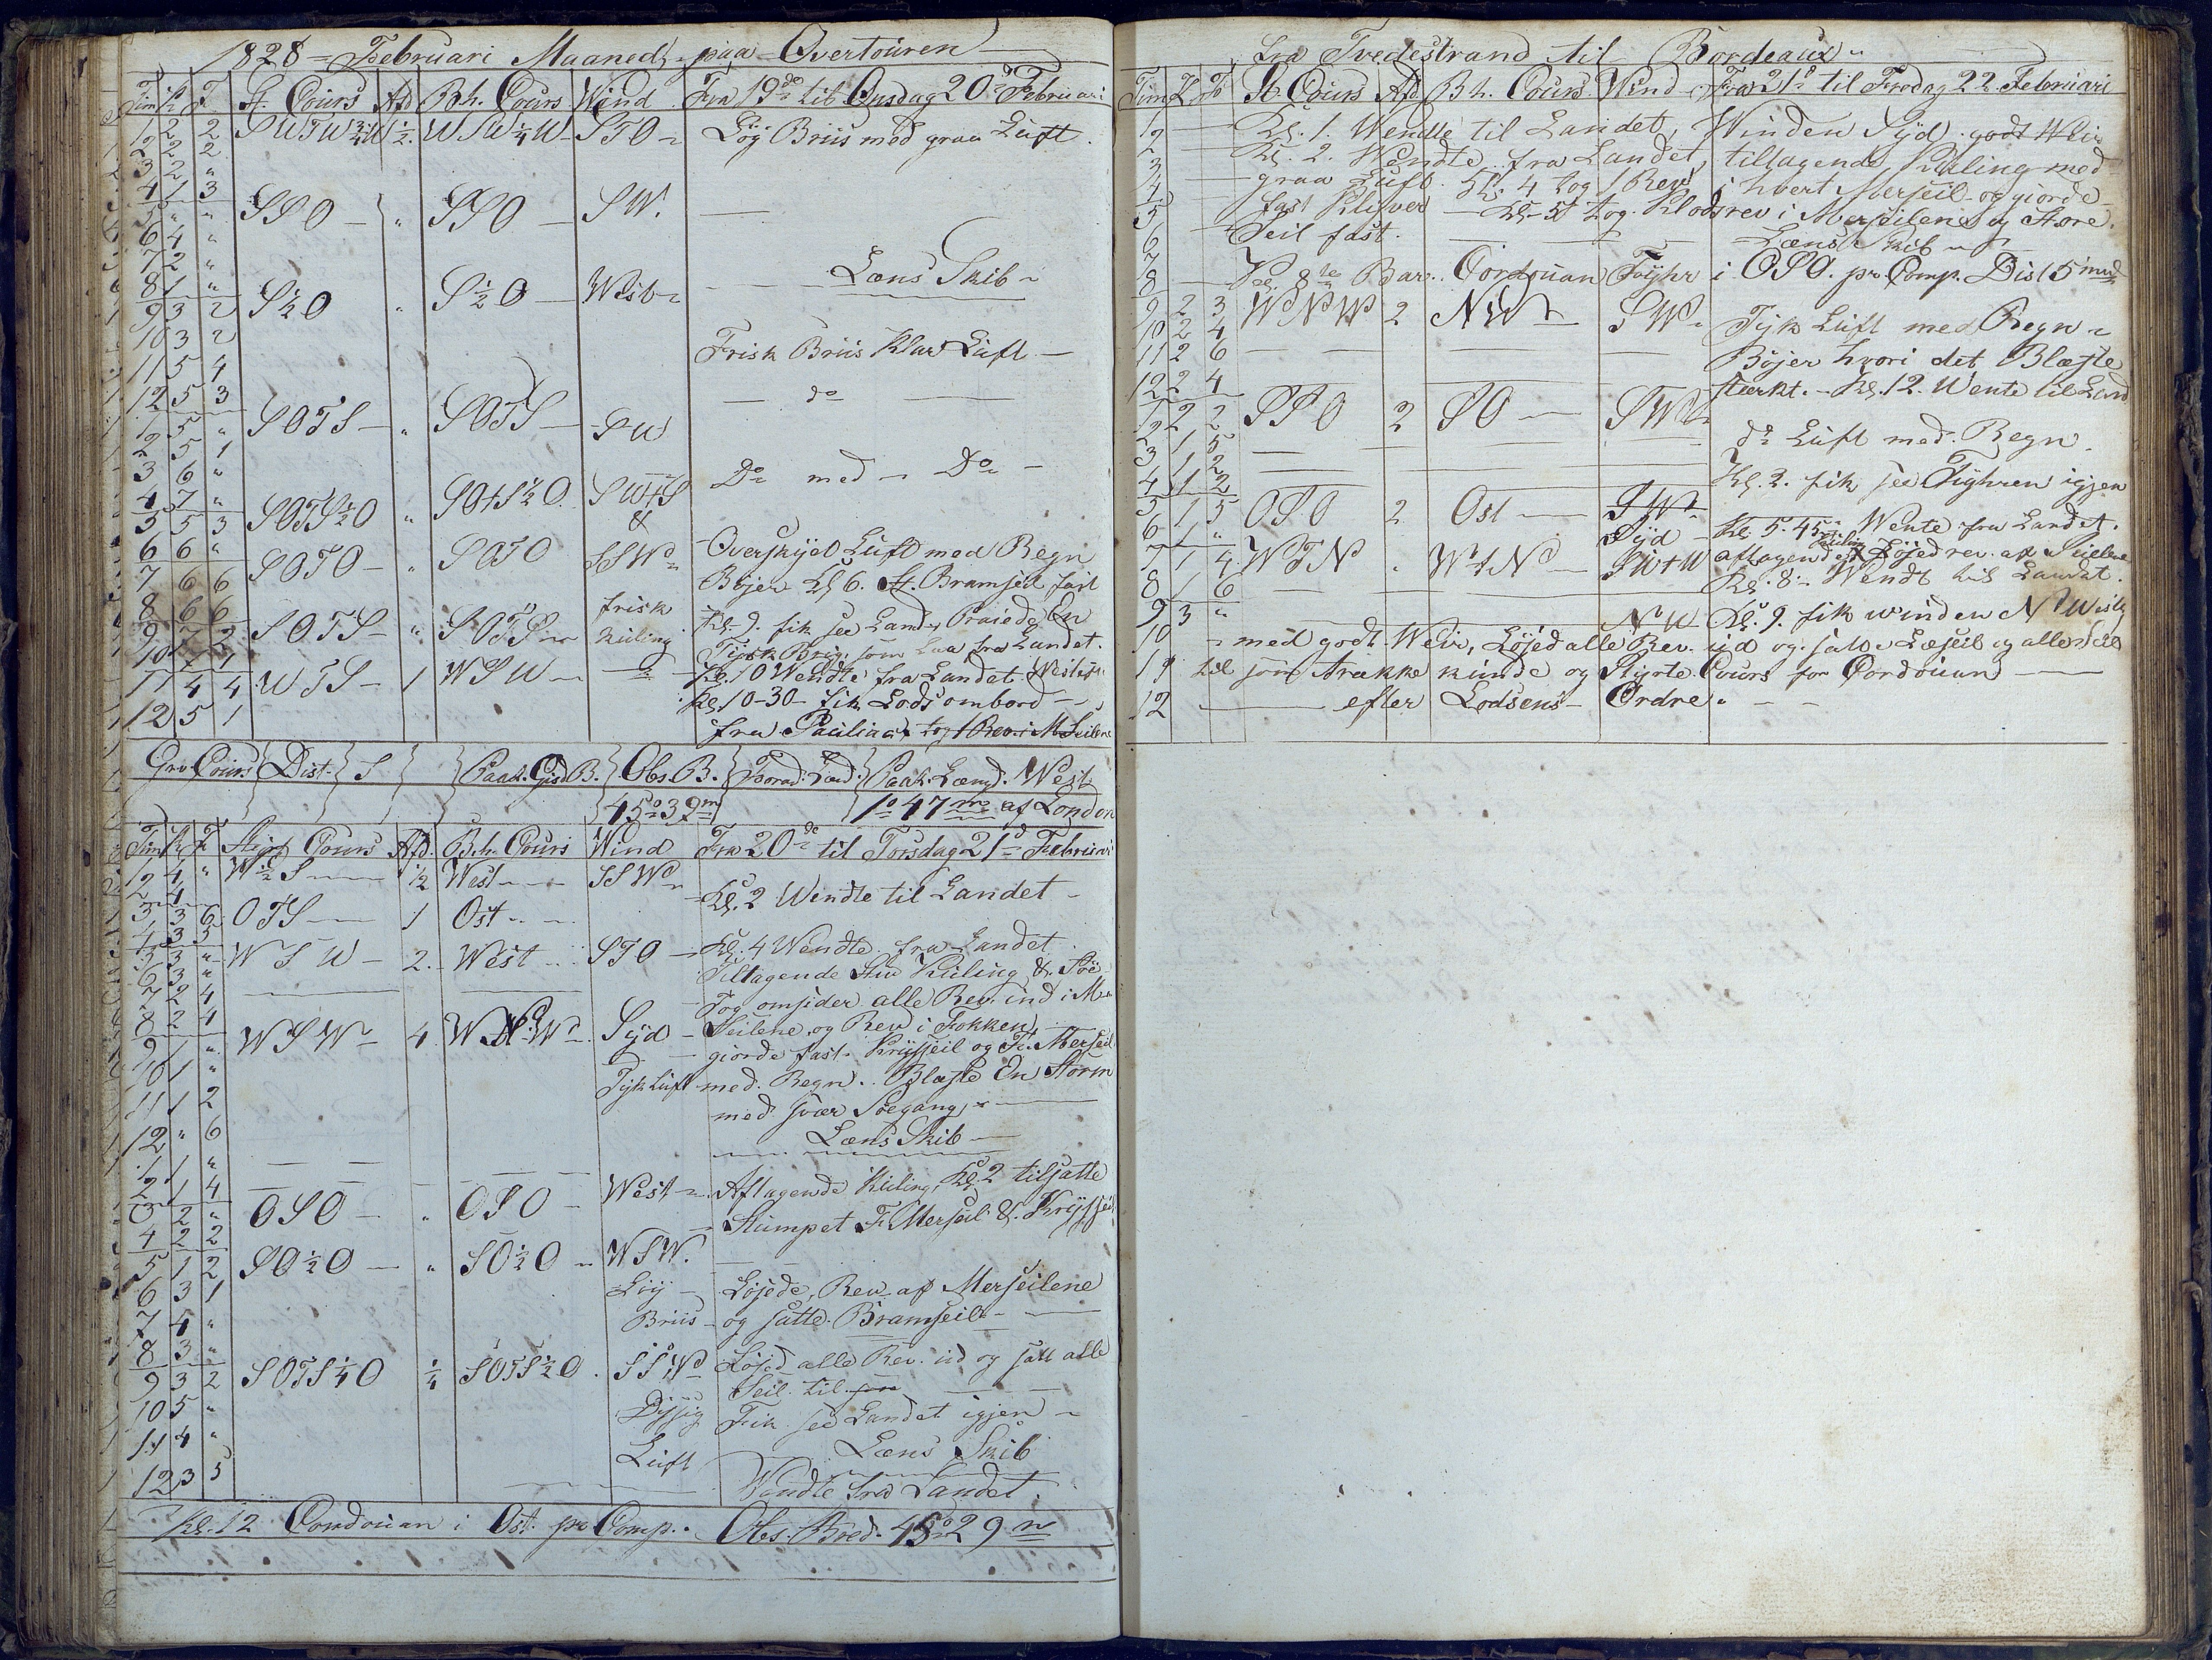 1828 = Februari Maaned, paa Overtouren
Tim K F St. Cours Afd Bh. Cours Wind Fra 19de til Onsdag 20de Februari
1 2 2 SWTW¾W ½ WSW¼W STO Løy Briis med graa Luft.
2 2 2
3 2 "
4 1 3
5 " " SSO " SSO SW.
6 4 "
7 2 "
8 1 " Læns Skib
9 3 2 S½O " S½O West
10 3 2
11 5 4 Frisk Briis Klar Luft
12 5 3 do
1 5 " SOTS " SOTS SW
2 5 1
3 6 " Do med Do
4 7 "
5 5 3 SOTS½O " SOtS½O. SWtS
6 6 " SOTO " SOTO & SSW Overskyet Luft med Regn
7 6 6 Bøjer Kl 6. St. Bramseil fast
8 6 6 frisk
9 7 2 SOTS " SOTS Kuling Kl. 9. fik see Land, Praiede En
10 7 1 Tysk Brig, som laa fra Landet.
11 4 4 WTS 1 WSW Kl. 10 Wendte fra Landet
12 5 1 Kl. 10-30 fik Lods ombord
fra tog 1 Rev i M Seilene
Grv. Cours Dist. S Paak. Gisd B. Obs. B. Forad: Læd: Paak. Længd. West
45° 39m 1° 47m af London
Tim K F Stigt Cours Afd. Bh. Cours Wind Fra 20de til Torsdag 21de Februari
1 4 " W½S ½ West SSW
2 4 Kl. 2 Wendte til Landet
3 3 6 OTS 1 Ost
4 3 5
5 3 " WSW 2. West STO Kl. 4 Wendte fra Landet
6 3 " Tiltagende Stiv Kuling & Søe
7 2 4 Tog omsider alle Rev ind i M
8 2 4 WSW 4. WNW. Syd Seilene og Rev i Fokken
9 1 " giorde fast. Krysseil og St. Merseil
10 1 " Tyk Luft med Regn. Blæste En Storm
11 1 2 med svær Søegang,
12 " 6 Læns Skib
1 1 "
2 1 4 West Aftagende Kuling, Kl. 2 tilsatte
3 2 " OSO " OSO Stumpet F. Merseil & Krysseil
4 2 2
5 1 2 SO½O " SO½O WSW.
6 3 1 Løy Løjede, Rev af Merseilene
7 4 " Briis og satte Bramseil
8 3 "
9 3 2 SOTS¼O ¼ SOTS½O. SSW Løjed alle Rev ud og satt alle
10 5 " Seil til
Dissig Fik see Landet igjen
11 4 " Luft Læns Skib
12 3 5 Wendte fra Landet.
Kl. 12 Cordouan i Ost. pr Comp. Obs. Bred. 45° 29m
fra Tvedestrand til Bordeaux
Tim K F St Cours Afd Bh. Cours Wind Fra 21de til Fredag 22 Februari
1 Kl. 1. Wendte til Landet, Winden Syd. godt Weir
2 Kl. 2. Wendte fra Landet, tiltagende Kuling med
3 graa Luft. Kl. 4 tog 1 Rev i hvert Merseil og giorde
4 fast Klyver Kl. 5 tog Klodsrev i Merseilene og Store
5 Seil fast.
6 Læns Skib
7
8 Kl. 8te Bar. Cordouan Fyhr i OSO. pr Comp. Dist 5 miil
9 2 3 WNW 2 NW SW
10 2 4 Tyk Luft med Regn
11 2 6 Bøjer hvori det Blæste
12 2 4 stærkt. Kl. 12. Wente til Land
1 2 2 SSO 2 SO SW
2 1 5 do Luft med Regn.
3 1 2
4 1 2 Kl. 2. fik see Fyhren igjen
5 1 5 OSO 2 Ost SW
6 1 " Syd Kl. 5.45 Wente fra Landet.
7 1 4 WTN " WtN SWtW aftagende Kuling Løjed rev. af Seilene
8 1 6 Kl. 8. Wendt til Landet.
9 3 " NW Kl. 9. fik winden N Westlig
10 med godt Weir, Løjed alle Rev. ud og satte Læseil og alle Seil
11 til som trække kunde og Styrte Cours for Cordouan
12 efter Lodsens Ordre.